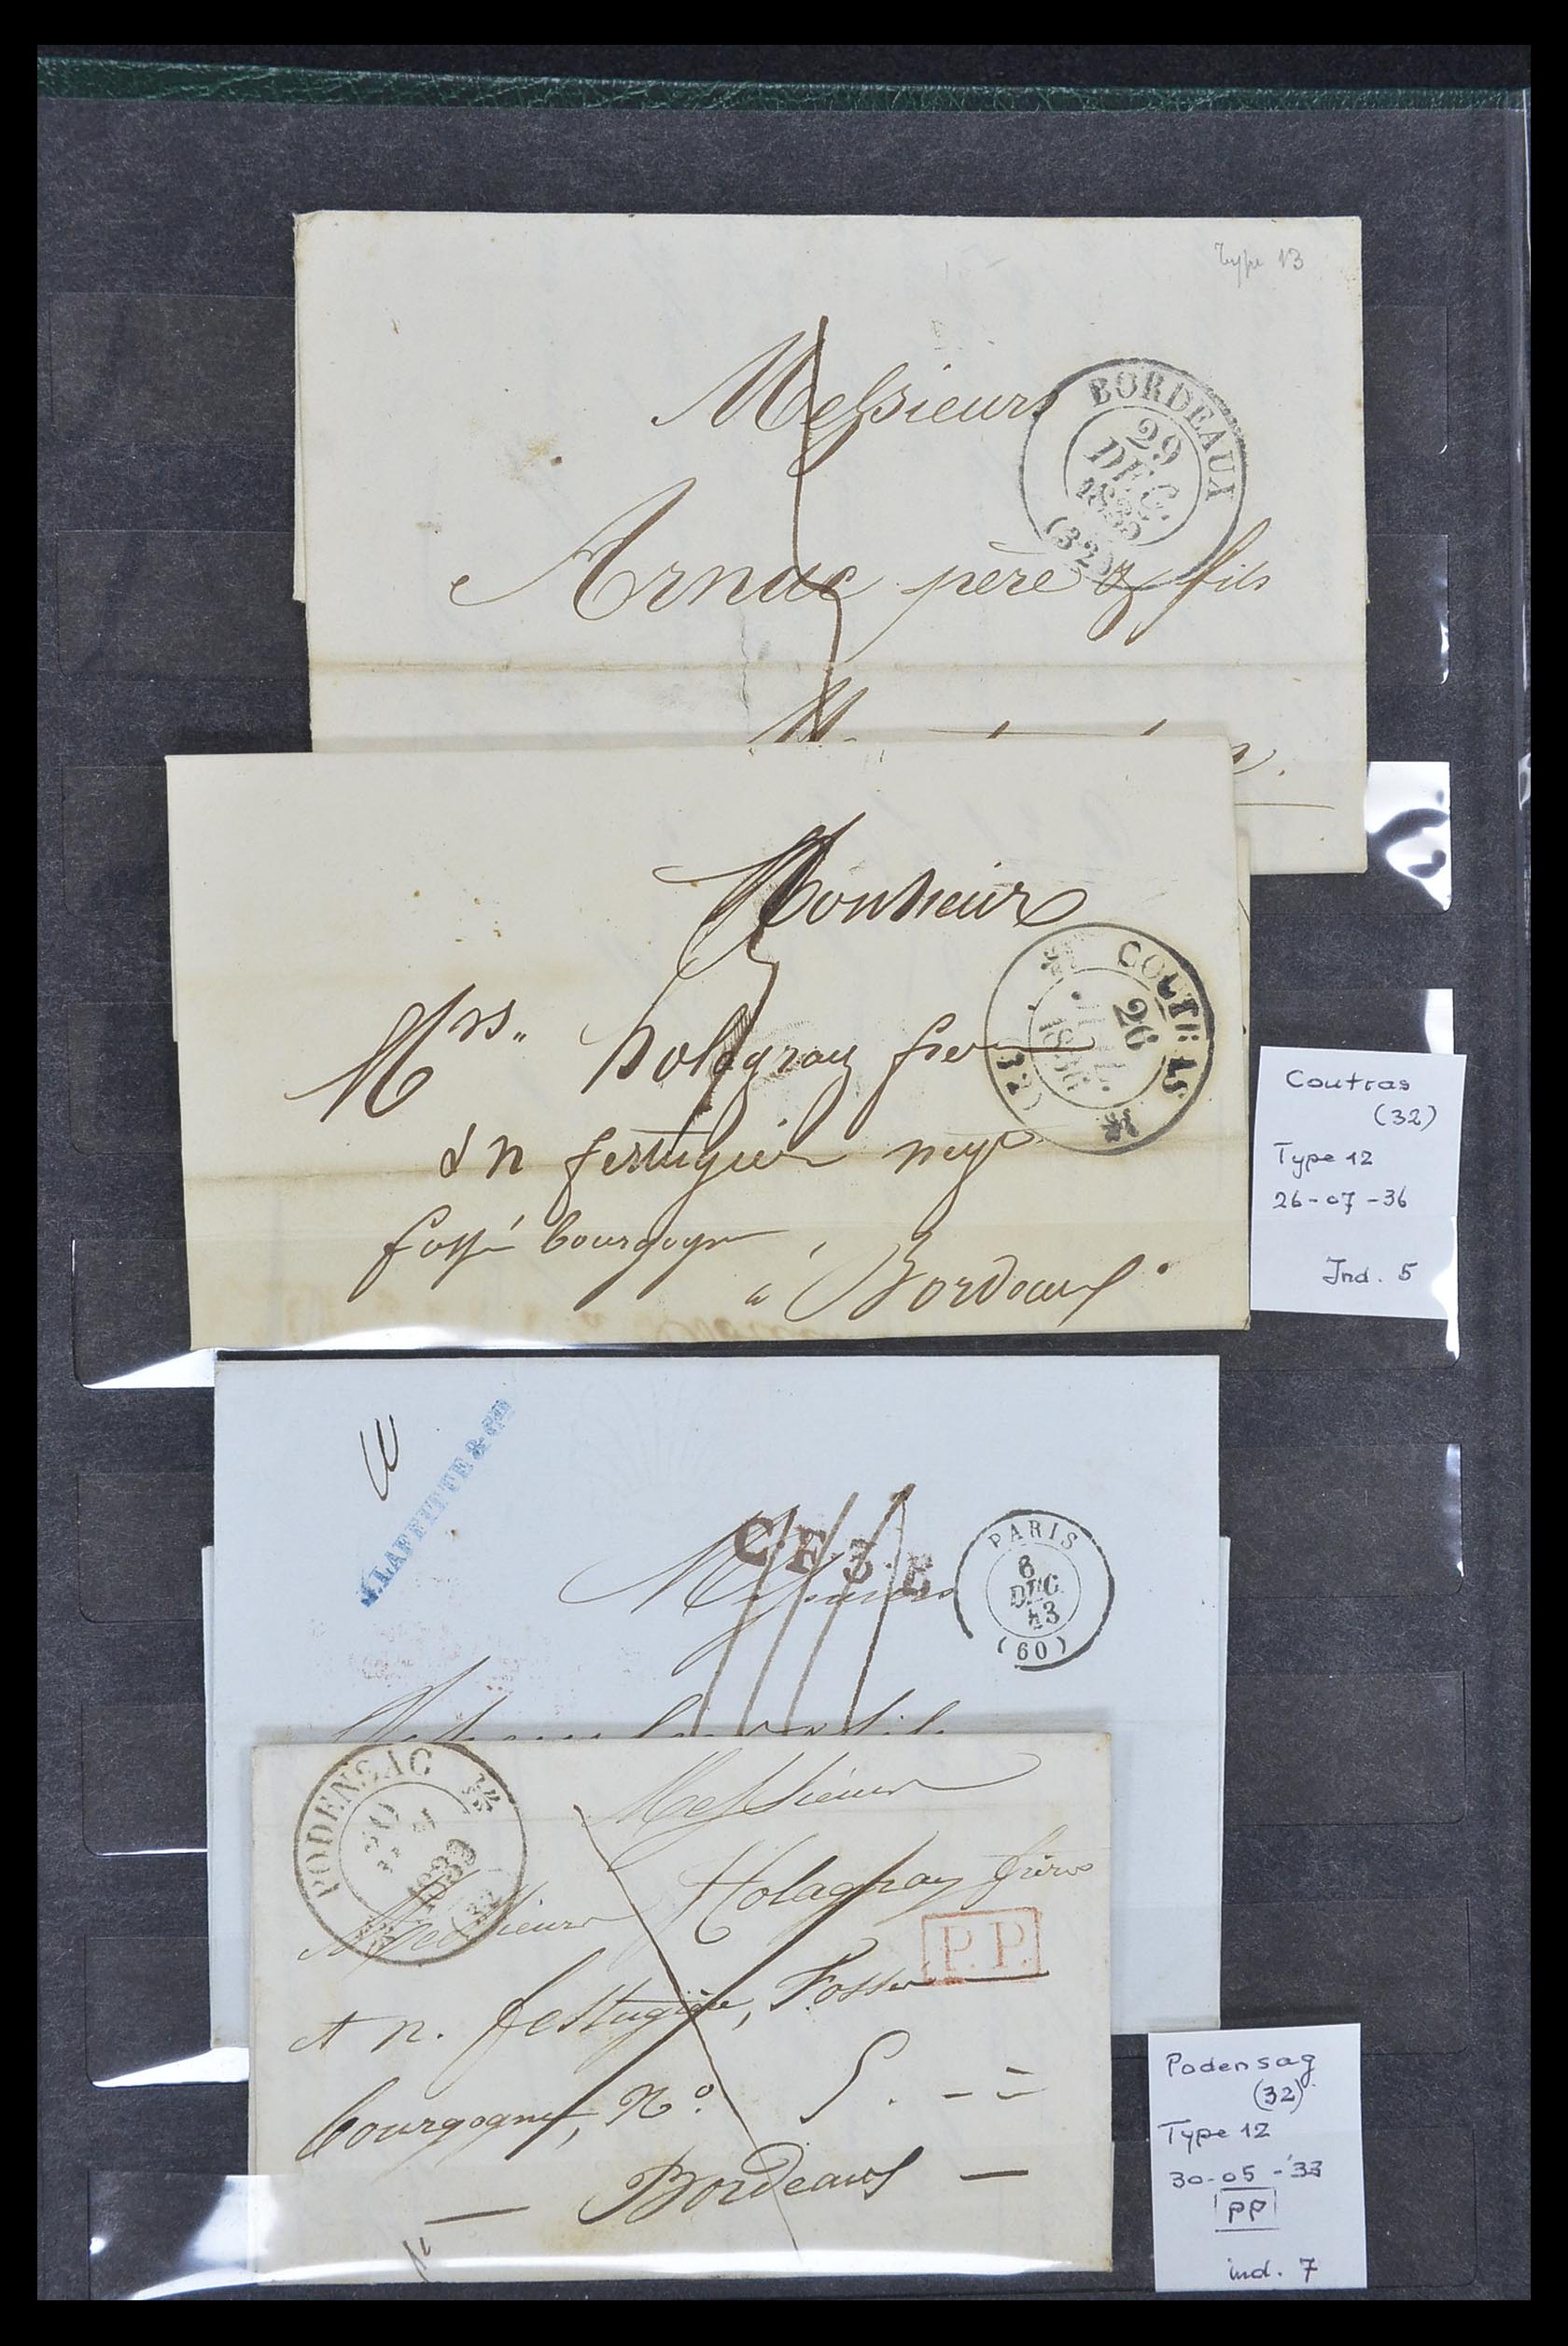 Type 13
Messieurs
BORDEAUX
29
DEC.
1835
(32)
Arnac père & fils
Monsieur
COUTRAS
26
1836
(32)
Mrs. holagray frères
& n festugière
fossé bourgogne
à Bordeaux.
Coutras
(32)
Type 12
26-07-36
Ind. 5
J. LAFFITTE & Cie
C.F.3.E
PARIS
6
DEC.
43
(60)
Messieurs
PODENSAC
30
1833
(32)
Messieurs
Messieurs Holagray frères
P.P.
et n. festugière, Fossé
bourgogne, No. 5.
Bordeaux
Podensag
(32)
Type 12
30-05-'33
PP
ind. 7